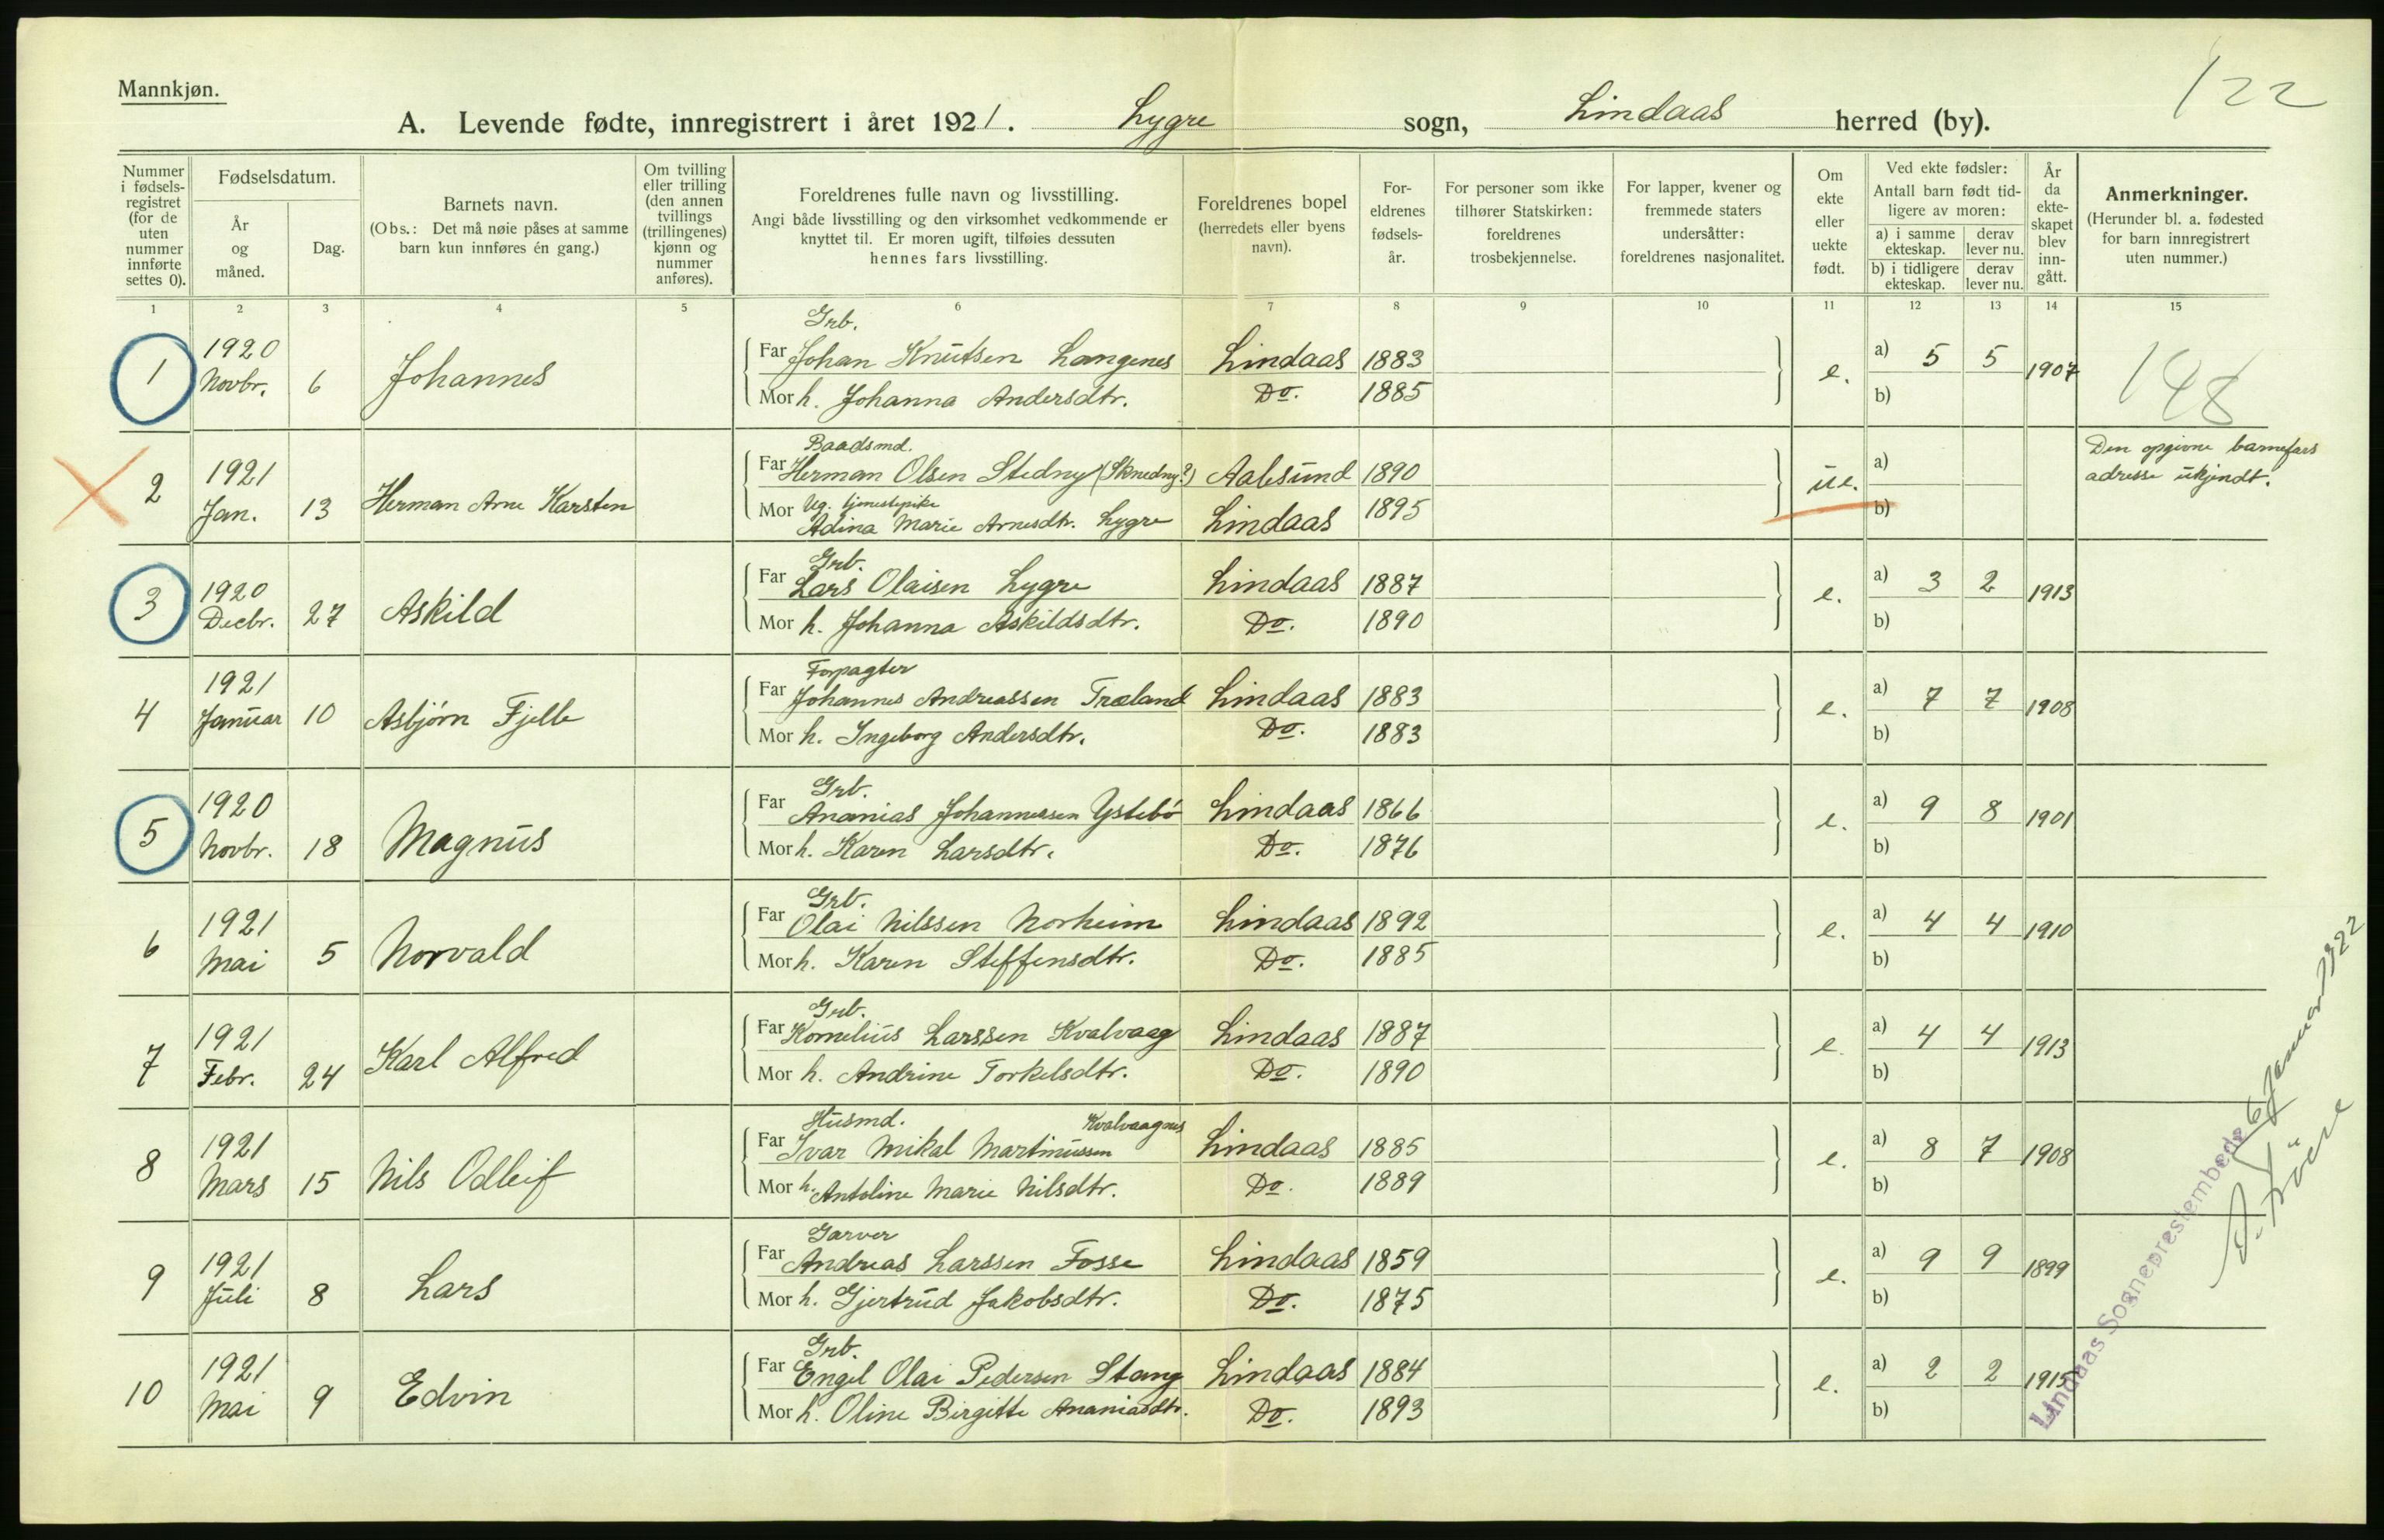 Mannkjøn.
122
A. Levende fødte, innregistrert i året 1921. Lygre sogn, Lindaas herred (by).
Nummer i fødsels-registret (for de uten nummer innførte settes 0).
Fødselsdatum.
År og måned.
Dag.
Barnets navn.
(Obs.: Det må nøie påses at samme barn kun innføres én gang.)
Om tvilling eller trilling (den annen tvillings (trillingenes) kjønn og nummer anføres).
Foreldrenes fulle navn og livsstilling.
Angi både livsstilling og den virksomhet vedkommende er knyttet til. Er moren ugift, tilføies dessuten hennes fars livsstilling.
Foreldrenes bopel (herredets eller byens navn).
For-eldrenes fødsels-år.
For personer som ikke tilhører Statskirken: foreldrenes trosbekjennelse.
For lapper, kvener og fremmede staters undersåtter: foreldrenes nasjonalitet.
Om ekte eller uekte født.
Ved ekte fødsler:
Antall barn født tid-ligere av moren:
a) i samme ekteskap. derav lever nu.
b) i tidligere ekteskap. derav lever nu.
År da ekte-skapet blev inn-gått.
Anmerkninger.
(Herunder bl. a. fødested for barn innregistrert uten nummer.)
1 2 3 4 5 6 7 8 9 10 11 12 13 14 15
Grb.
1 1920 Novbr. 6 Johannes Far Johan Knutsen Langenes Lindaas 1883 e. a) 5 5 1907 148
Mor h. Johanna Andersdtr. Do. 1885 b)
Baadsmd.
2 1921 Jan. 13 Herman Arne Karsten Far Herman Olsen Stedny (Sknedny?) Aalesund 1890 ue. a) Den opgivne barnefars adresse ukjendt.
Mor Ug. tjenestepike
Adina Marie Arnesdtr. Lygre Lindaas 1895 b)
Grb.
3 1920 Decbr. 27 Askild Far Lars Olaisen Lygre Lindaas 1887 e. a) 3 2 1913
Mor h. Johanna Askildsdtr. Do. 1890 b)
Forpagter
4 1921 Januar 10 Asbjørn Fjelle Far Johannes Andreassen Træland Lindaas 1883 e. a) 7 7 1908
Mor h. Ingeborg Andersdtr. Do. 1883 b)
Grb.
5 1920 Novbr. 18 Magnus Far Ananias Johannessen Ystebö Lindaas 1866 e. a) 9 8 1901
Mor h. Karen Larsdtr. Do. 1876 b)
Grb.
6 1921 Mai 5 Norvald Far Olai Nilssen Norheim Lindaas 1892 e. a) 4 4 1910
Mor h. Karen Steffensdtr. Do. 1885 b)
Grb.
7 1921 Febr. 24 Karl Alfred Far Kornelius Larssen Kvalvaag Lindaas 1887 e. a) 4 4 1913
Mor h. Andrine Torkelsdtr. Do. 1890 b)
Husmd. Kvalvaagnes
8 1921 Mars 15 Nils Odleif Far Ivar Mikal Martinussen Lindaas 1885 e. a) 8 7 1908
Mor h. Antoline Marie Nilsdtr. Do. 1889 b)
Garver
9 1921 Juli 8 Lars Far Andreas Larssen Fosse Lindaas 1859 e. a) 9 9 1899
Mor h. Gjertrud Jakobsdtr. Do. 1875 b)
Grb.
10 1921 Mai 9 Edvin Far Engel Olai Pedersen Stang Lindaas 1884 e. a) 2 2 1915
Mor h. Oline Birgitte Ananiasdtr. Do. 1893 b)
Lindaas Sogneprestembede 6 Januar 1922